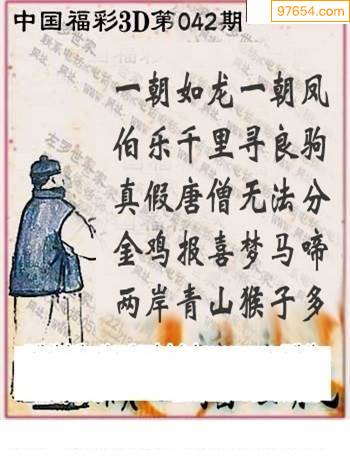 97654.com
中国福彩3D第042期
一朝如龙一朝凤
伯乐千里寻良驹
真假唐僧无法分
金鸡报喜梦马啼
两岸青山猴子多